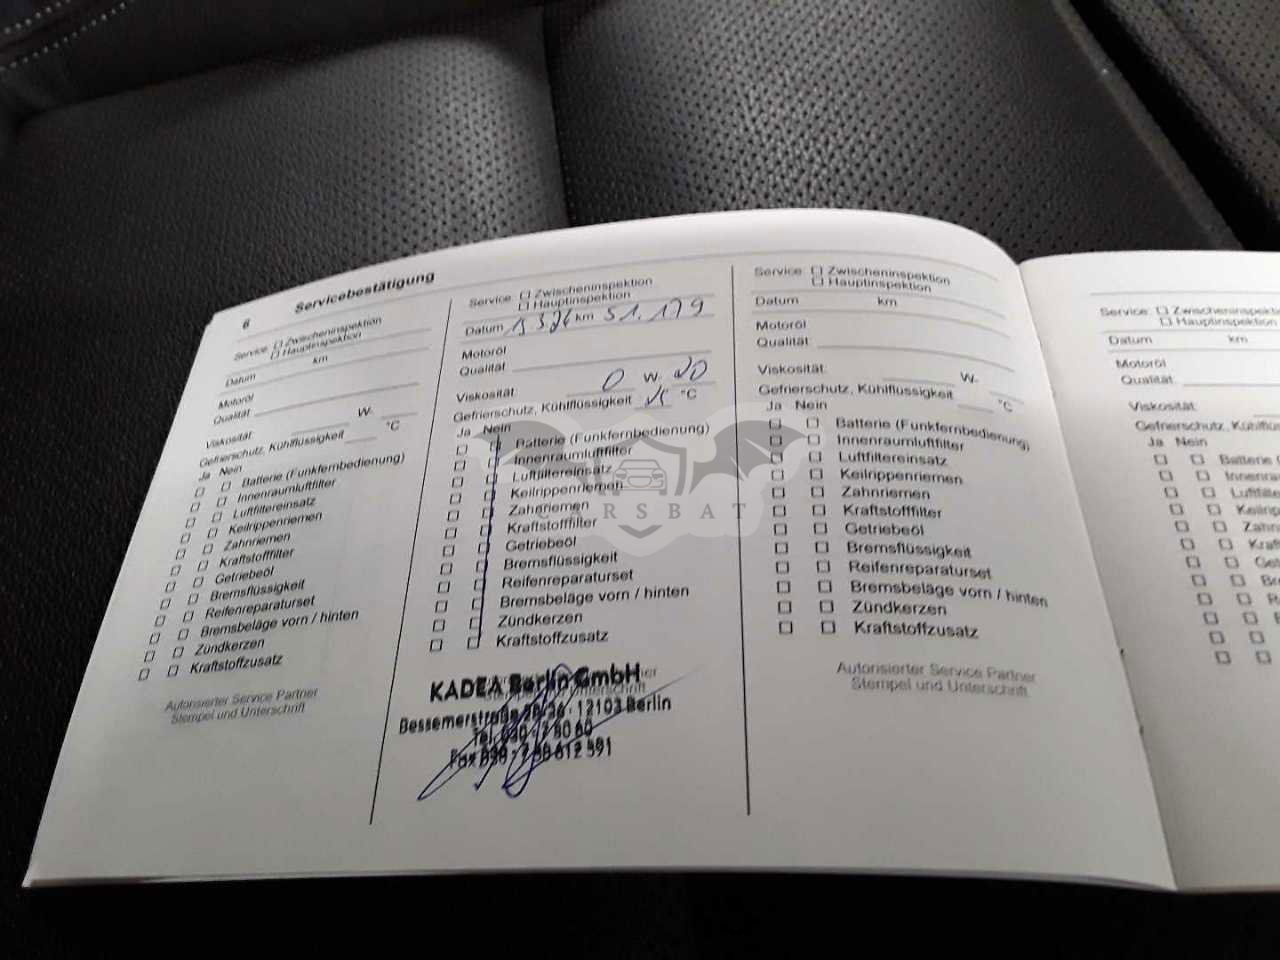 6 Servicebestätigung
Service: Zwischeninspektion
Hauptinspektion
Datum km
Motoröl
Qualität
Viskosität: W-
Gefrierschutz, Kühlflüssigkeit °C
Ja Nein
Batterie (Funkfernbedienung)
Innenraumluftfilter
Luftfiltereinsatz
Keilrippenriemen
Zahnriemen
Kraftstofffilter
Getriebeöl
Bremsflüssigkeit
Reifenreparaturset
Bremsbeläge vorn / hinten
Zündkerzen
Kraftstoffzusatz
Autorisierter Service Partner
Stempel und Unterschrift
Service: Zwischeninspektion
Hauptinspektion
Datum km 51.179
Motoröl
Qualität
Viskosität: 0 W- 20
Gefrierschutz, Kühlflüssigkeit °C
Ja Nein
Batterie (Funkfernbedienung)
Innenraumluftfilter
Luftfiltereinsatz
Keilrippenriemen
Zahnriemen
Kraftstofffilter
Getriebeöl
Bremsflüssigkeit
Reifenreparaturset
Bremsbeläge vorn / hinten
Zündkerzen
Kraftstoffzusatz
KADEA Berlin GmbH
Bessemerstraße 12103 Berlin
Tel. 030 - 7 80 60
Fax 030 - 7 80 612 391
CARSBAT
Service: Zwischeninspektion
Hauptinspektion
Datum km
Motoröl
Qualität:
Viskosität: W-
Gefrierschutz, Kühlflüssigkeit °C
Ja Nein
Batterie (Funkfernbedienung)
Innenraumluftfilter
Luftfiltereinsatz
Keilrippenriemen
Zahnriemen
Kraftstofffilter
Getriebeöl
Bremsflüssigkeit
Reifenreparaturset
Bremsbeläge vorn / hinten
Zündkerzen
Kraftstoffzusatz
Autorisierter Service Partner
Stempel und Unterschrift
Service:
Datum km
Motoröl
Qualität:
Viskosität:
Ja Nein